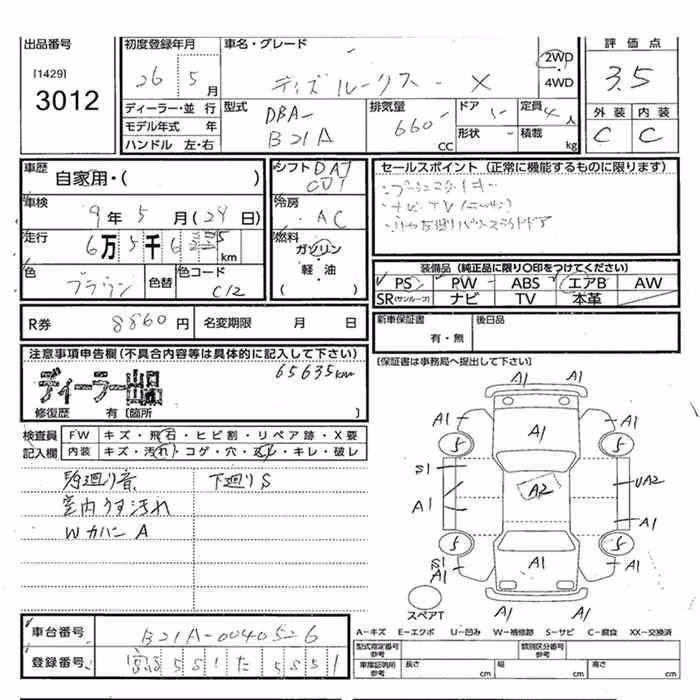 出品番号
[1429]
3012
初度登録年月
26 5 月
車名・グレード
デイズルークス - X
2WD
・4WD
評価点
3.5
外装 内装
C C
ディーラー・並行
モデル年式 年
ハンドル 左・右
型式
DBA-
B21A
排気量
660-
CC
ドア
形状
定員
4人
積載
kg
車歴
自家用・( )
車検
9年 5月(24日)
走行
6万 5千 6 3 5 km
色
ブラウン
色替
色コード
C12
シフト DAT
CVT
冷房
AC
燃料
ガソリン
・
軽・油
( )
セールスポイント(正常に機能するものに限ります)
装備品(純正品に限り○印をつけてください)
PS PW ABS エアB AW
SR(サンルーフ) ナビ TV 本革
R券 8860円 名変期限 月 日
新車保証書
有・無
後日品
注意事項申告欄(不具合内容等は具体的に記入して下さい)
65635km
ディーラー出品
修復歴 有〔箇所 〕
(保証書は事務局へ提出して下さい)
検査員
記入欄
FW キズ・飛石・ヒビ割・リペア跡・X要
内装 キズ・汚れ・コゲ・穴・・キレ・破レ
下廻りS
室内うす汚れ
Wカバン A
A1 A1
A1 A1 A1
5 5
S1 UA2
A2
A1 A1
5 5
S1 A1 A1 A1
A1 A1
スペアT
車台番号 B21A-0040526
登録番号 551 た 5551
A-キズ E-エクボ U-凹み W-補修跡 S-サビ C-腐食 XX-交換済
型式指定番号
参考
類別区分番号
参考
車庫証明用
参考
長さ cm 幅 cm 高さ cm